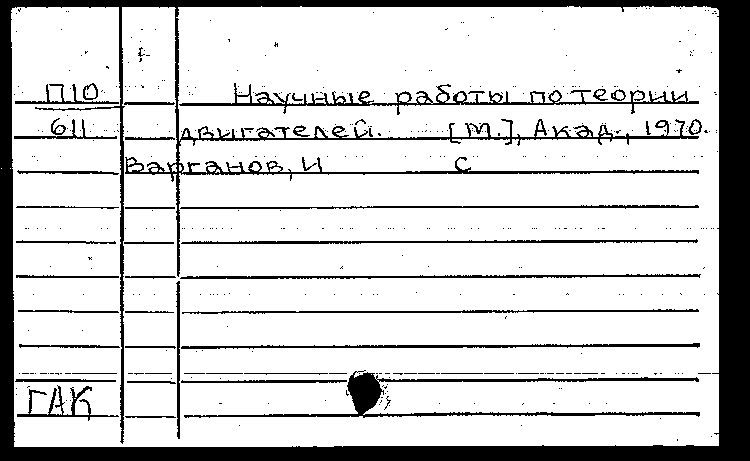 П10 Научные работы по теории
611 двигателей. [М.], Акад., 1970.
Варганов, И С
ГАК